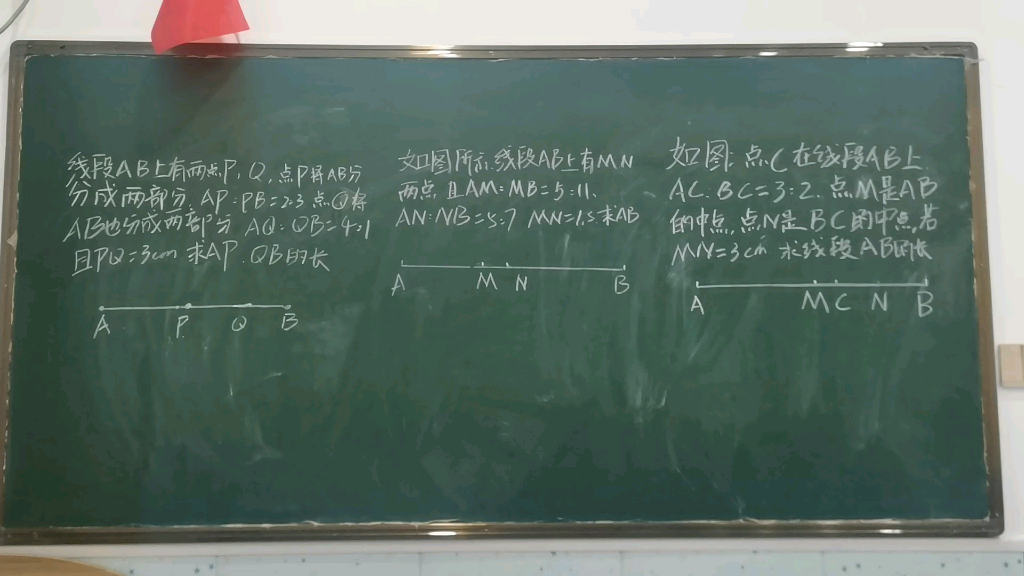 线段AB上有两点P,Q,点P将AB分
分成两部分,AP:PB=2:3 点Q将
AB也分成两部分 AQ:QB=4:1
且PQ=3cm 求AP.QB的长
A P. Q B
如图所示,线段AB上有MN
两点,且AM:MB=5:11.
AN:NB=5:7 MN=1.5 求AB
A M N B
如图,点C在线段AB上,
AC:BC=3:2.点M是AB
的中点,点N是BC的中点,若
MN=3cm 求线段AB的长
A M C N B